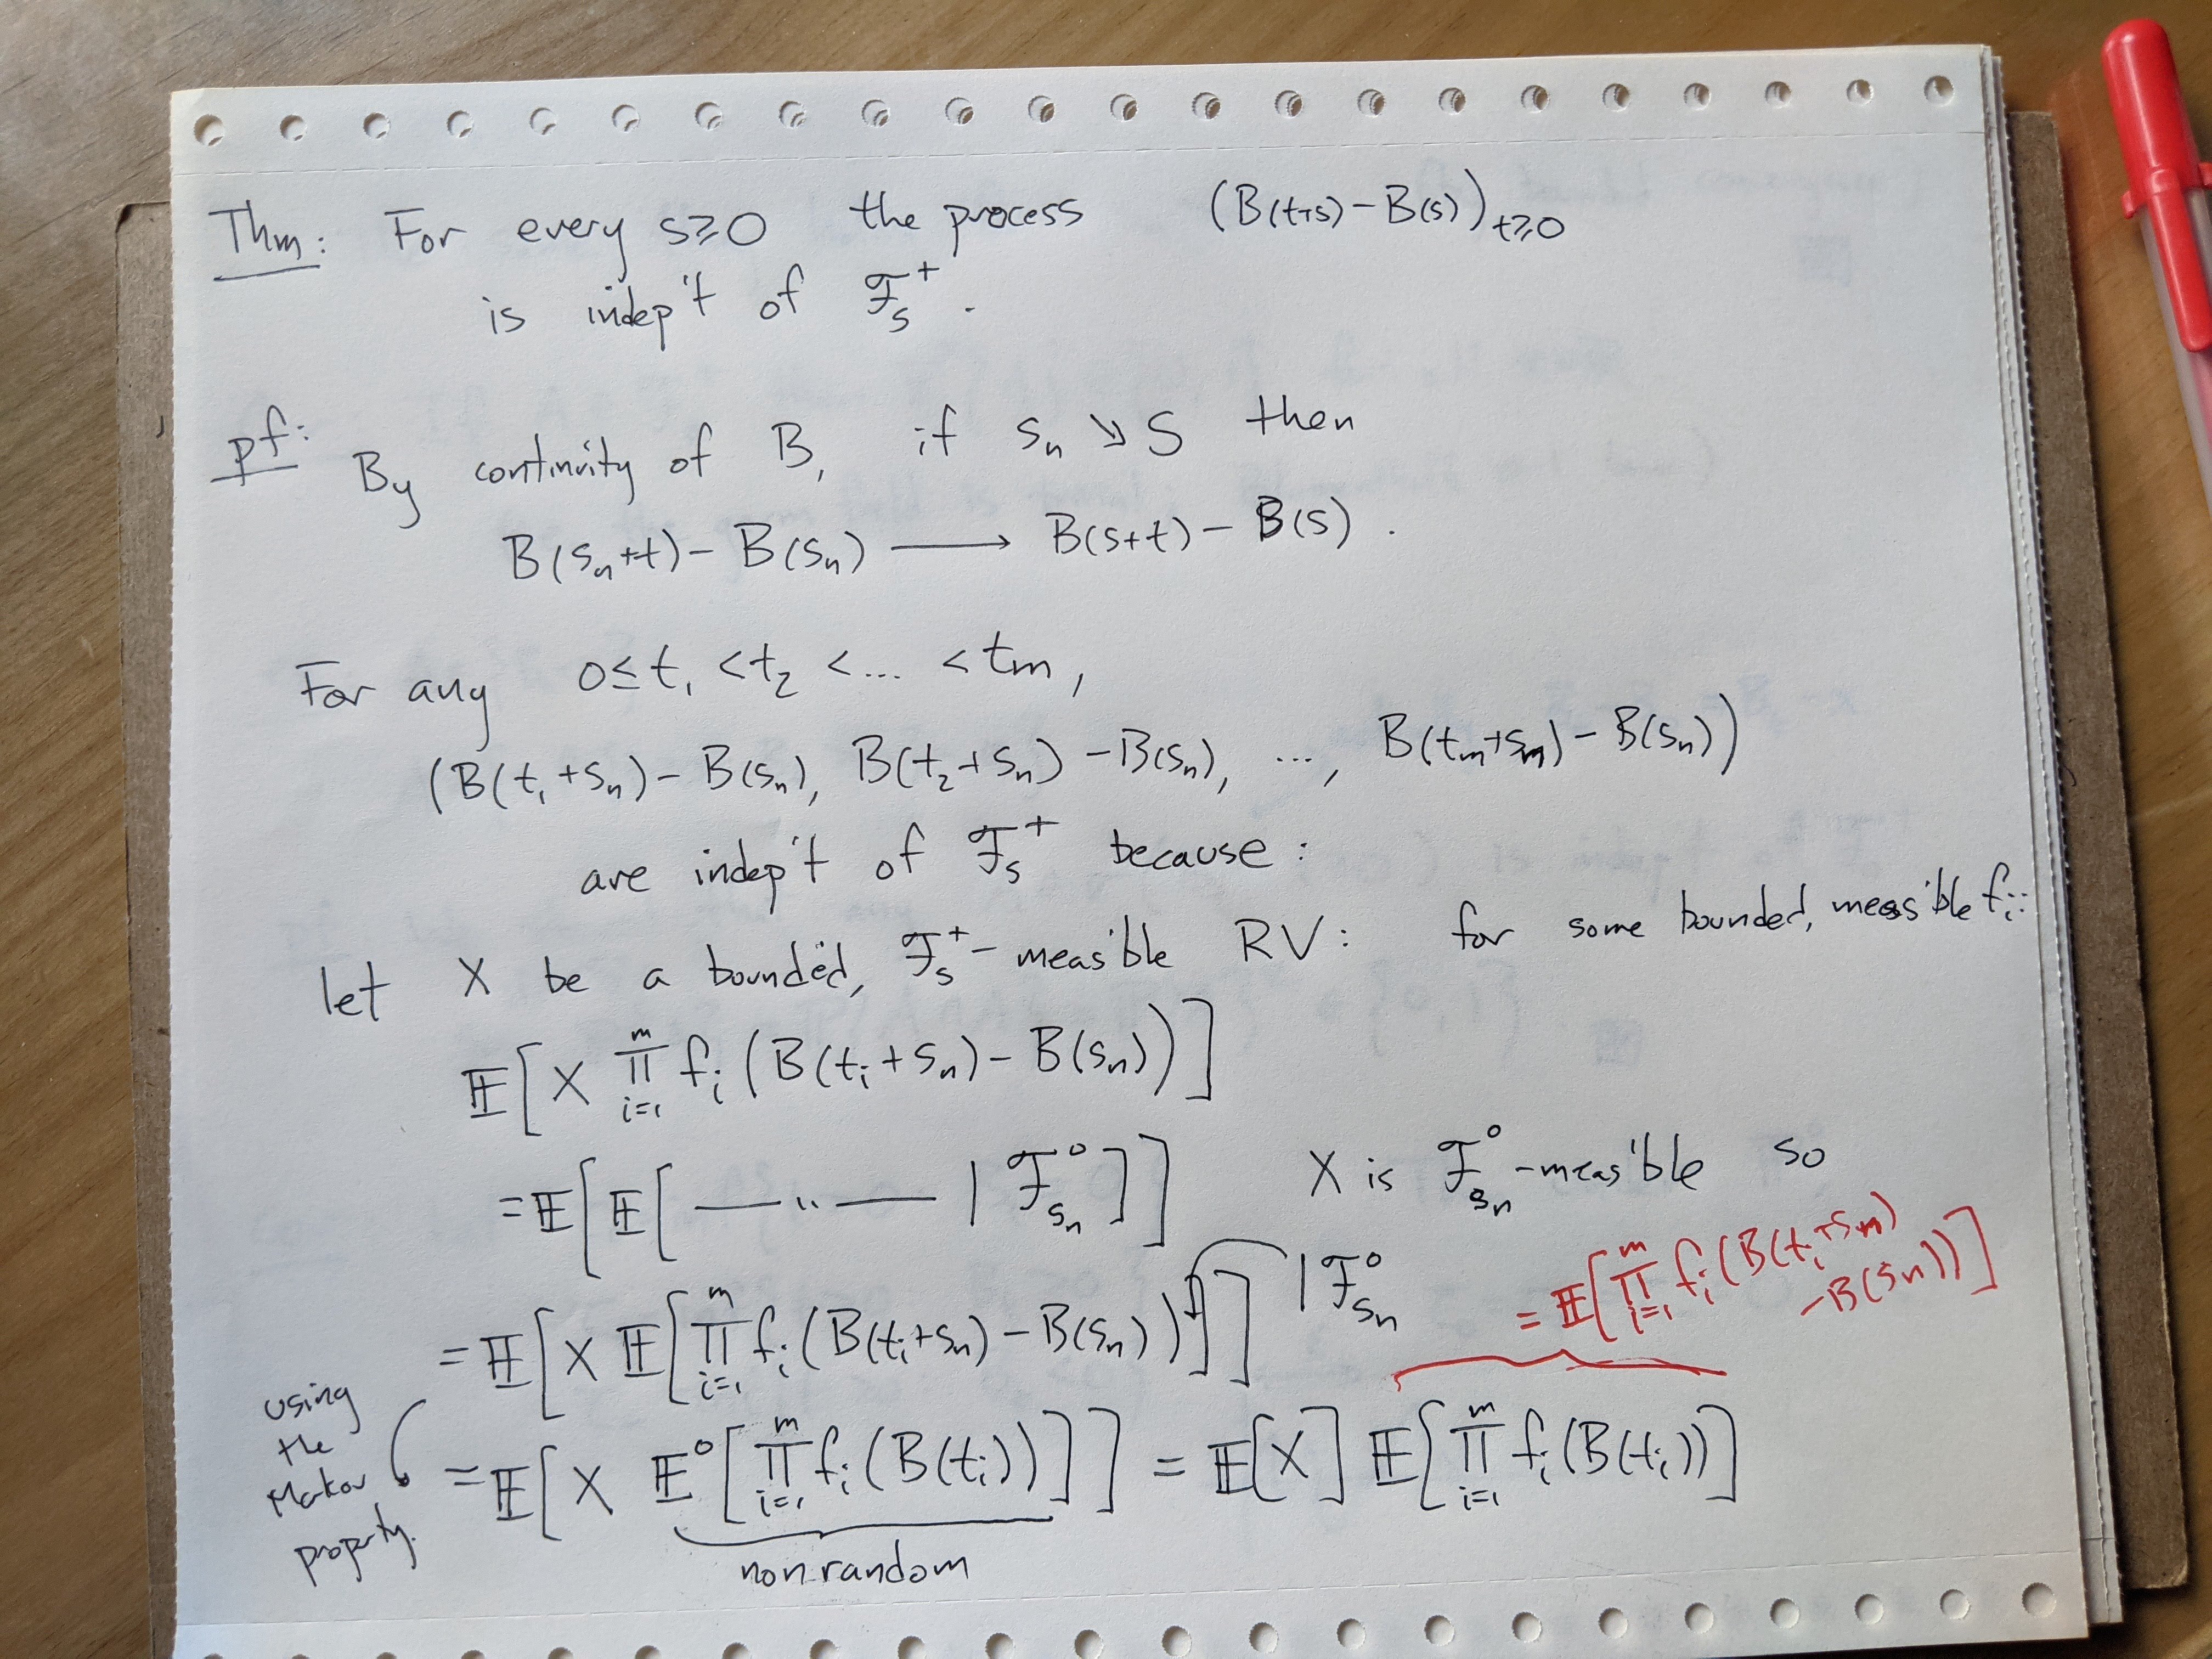 Thm: For every s≥0 the process (B(t+s)-B(s))_{t≥0}
is indep't of ℱ_s^+.
pf: By continuity of B, if s_n ↘ s then
B(s_n+t)-B(s_n) ⟶ B(s+t)-B(s).
For any 0≤t_1<t_2<...<t_m,
(B(t_1+s_n)-B(s_n), B(t_2+s_n)-B(s_n), ..., B(t_m+s_m)-B(s_n))
are indep't of ℱ_s^+ because:
let X be a bounded, ℱ_s^+-meas'ble RV: for some bounded, meas'ble f_i:
𝔼[X ∏_{i=1}^m f_i(B(t_i+s_n)-B(s_n))]
=𝔼[𝔼[ —"— | ℱ_{s_n}^o]] X is ℱ_{s_n}^o-meas'ble so
=𝔼[X 𝔼[∏_{i=1}^m f_i(B(t_i+s_n)-B(s_n))]] | ℱ_{s_n}^o
=𝔼[∏_{i=1}^m f_i(B(t_i+s_n)
-B(s_n))]
using
the
Makov
property.
=𝔼[X 𝔼^o[∏_{i=1}^m f_i(B(t_i))]] = 𝔼[X] 𝔼[∏_{i=1}^m f_i(B(t_i))]
non-random